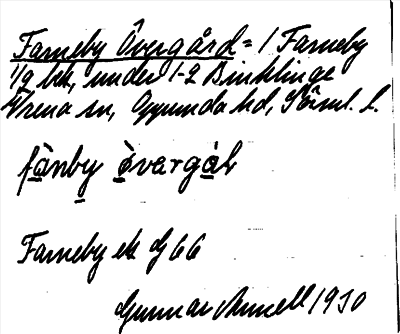 Farneby Övergård = 1 Farneby
1/9 hk, under 1-2 Binklinge
Vrena sn, Oppunda hd, Sörml. l.
fànby òvargàḷ
Farneby ek dj 66
Gunnar Arnell 1930